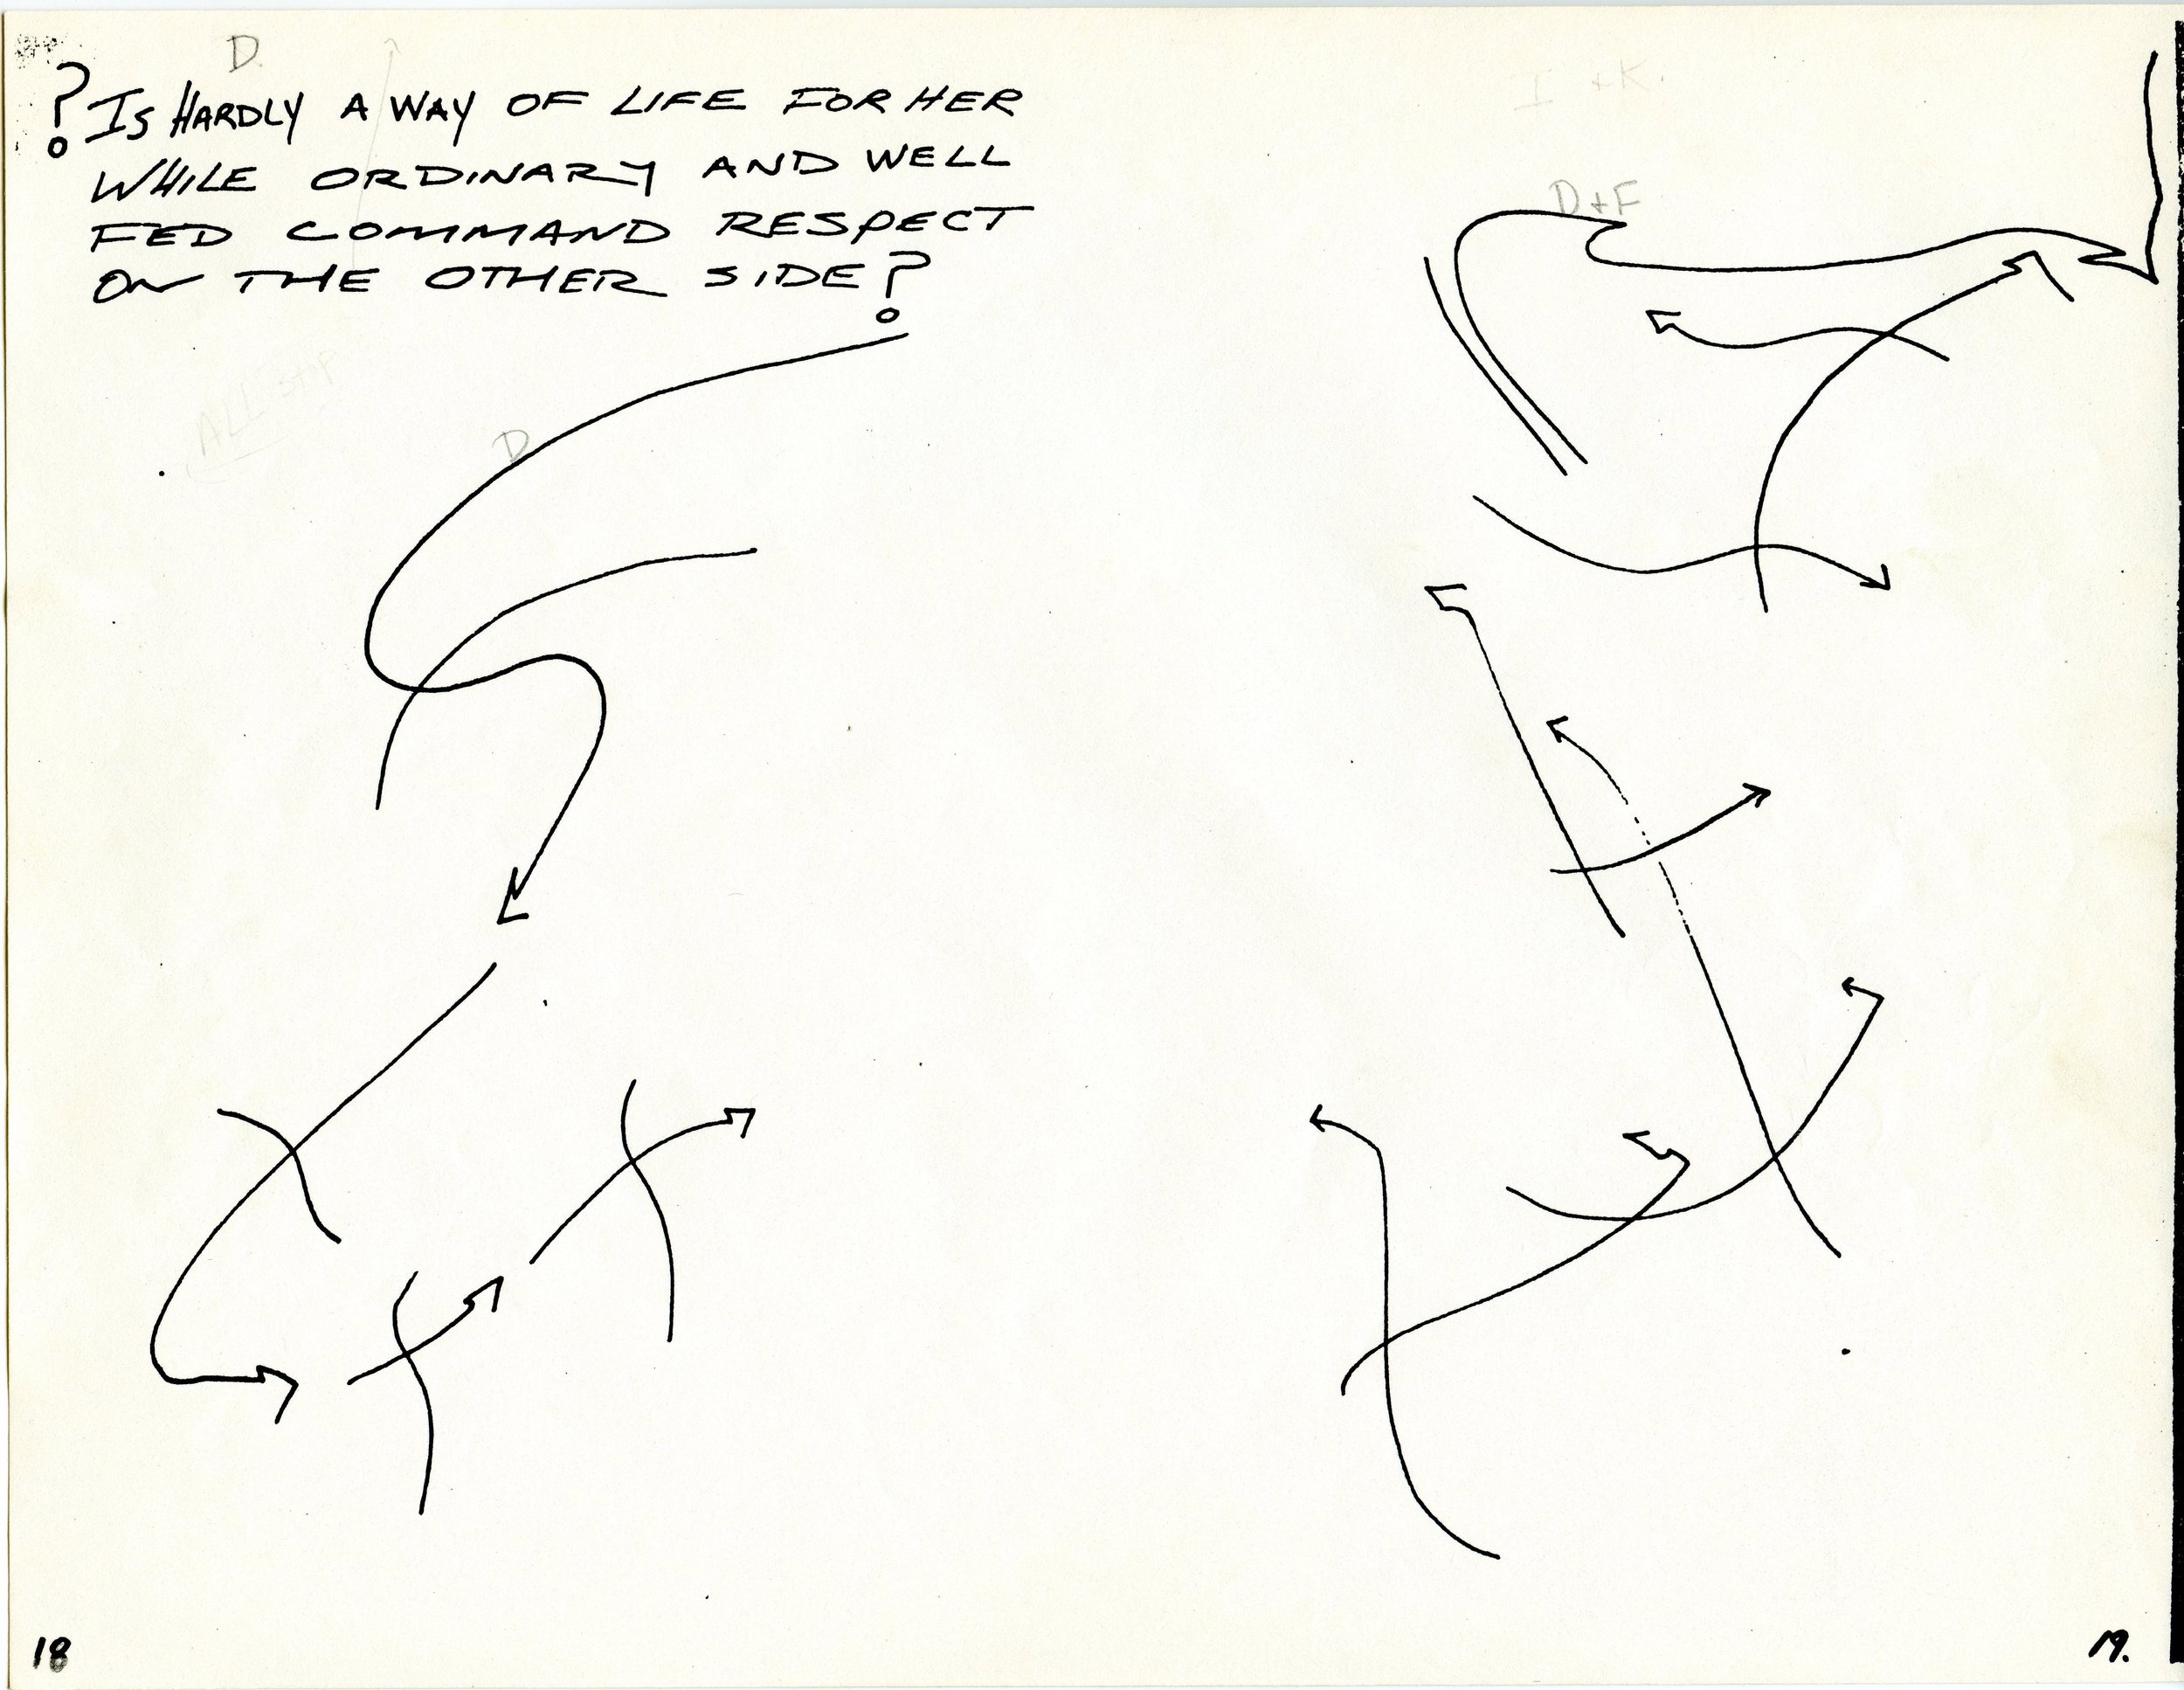 D.
? IS HARDLY A WAY OF LIFE FOR HER
WHILE ORDINARY AND WELL
FED COMMAND RESPECT
ON THE OTHER SIDE?
D
18
I + K.
D + F
19.